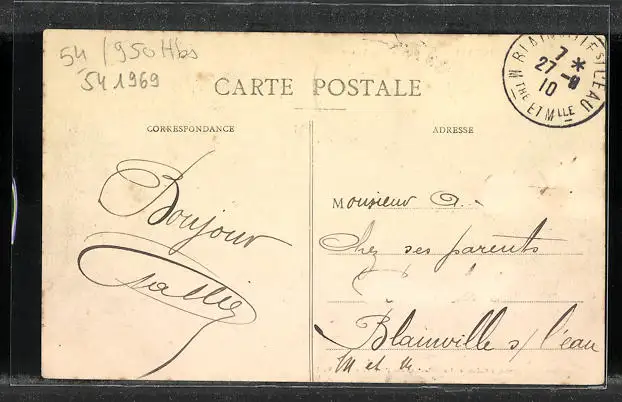 54 / 950 Hbs
54 1969
CARTE POSTALE
BLAINVILLE S/ L'EAU
7 *
27 - 9
10
M THE ET M LLE
CORRESPONDANCE
ADRESSE
Bonjour
Monsieur G.
Chez ses parents
Blainville s/ l'eau
M et M